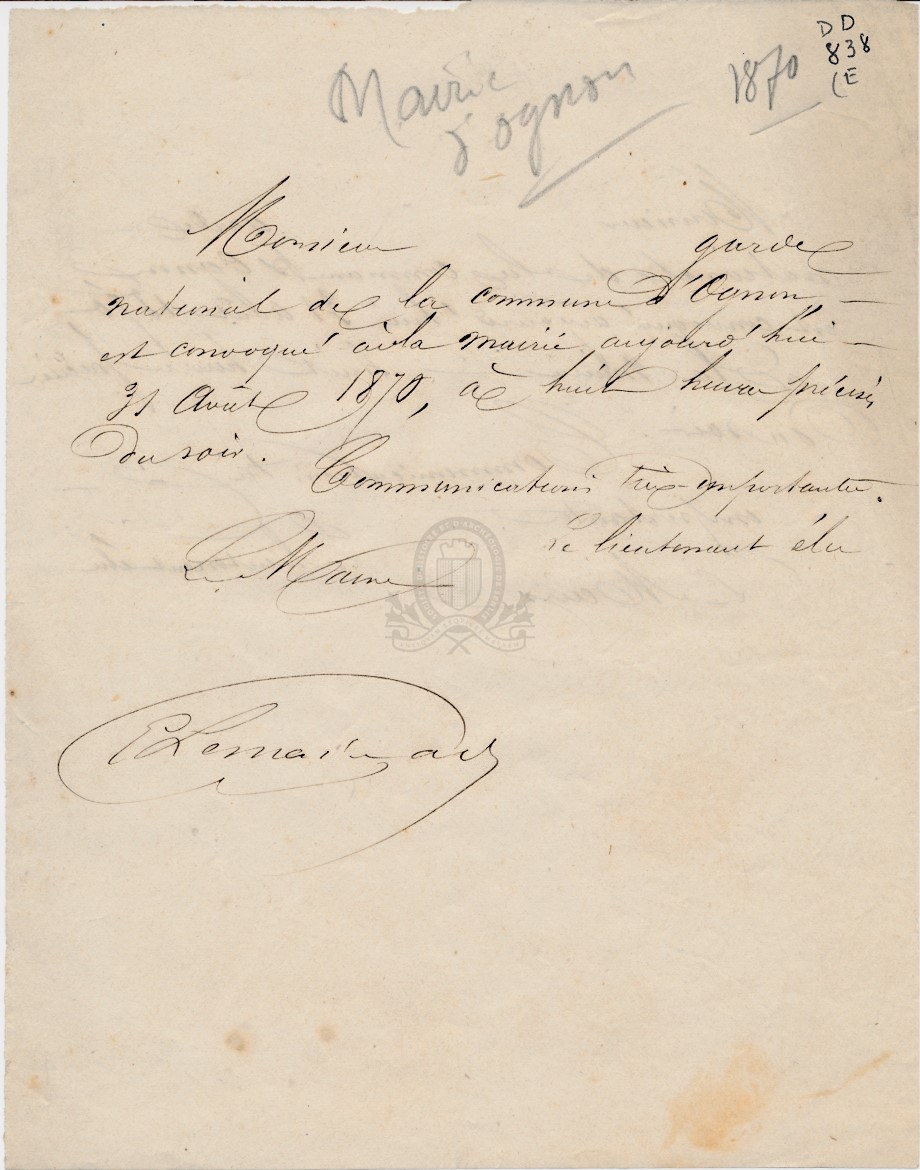 DD
838
(E
1870
Mairie
d'ognon
Monsieur garde
national de la commune d'Ognon
est convoqué à la mairie aujourd'hui
31 Août 1870, à huit heures précises
du soir.
Communications très-importantes.
Le lieutenant élu
Le Maire
E Lemaire